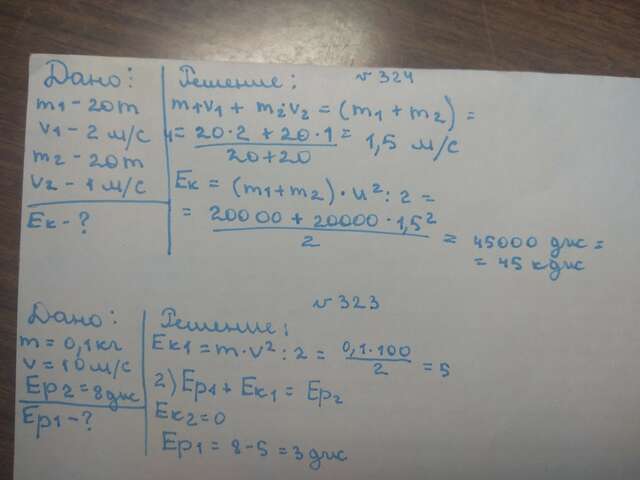 №324
Дано:
m1 - 20т
v1 - 2 м/с
m2 - 20т
v2 - 1 м/с
Ек - ?
Решение:
m1v1 + m2v2 = (m1 + m2) =
u = 20·2 + 20·1 / 20+20 = 1,5 м/с
Ек = (m1+m2)·u²:2 =
= 20000 + 20000·1,5² / 2 = 45000 дж =
= 45 кдж
№323
Дано:
m = 0,1кг
v = 10м/с
Ер2 = 8дж
Ер1 - ?
Решение:
Ек1 = m·v²:2 = 0,1·100 / 2 = 5
2) Ер1 + Ек1 = Ер2
Ек2=0
Ер1 = 8-5 = 3 дж